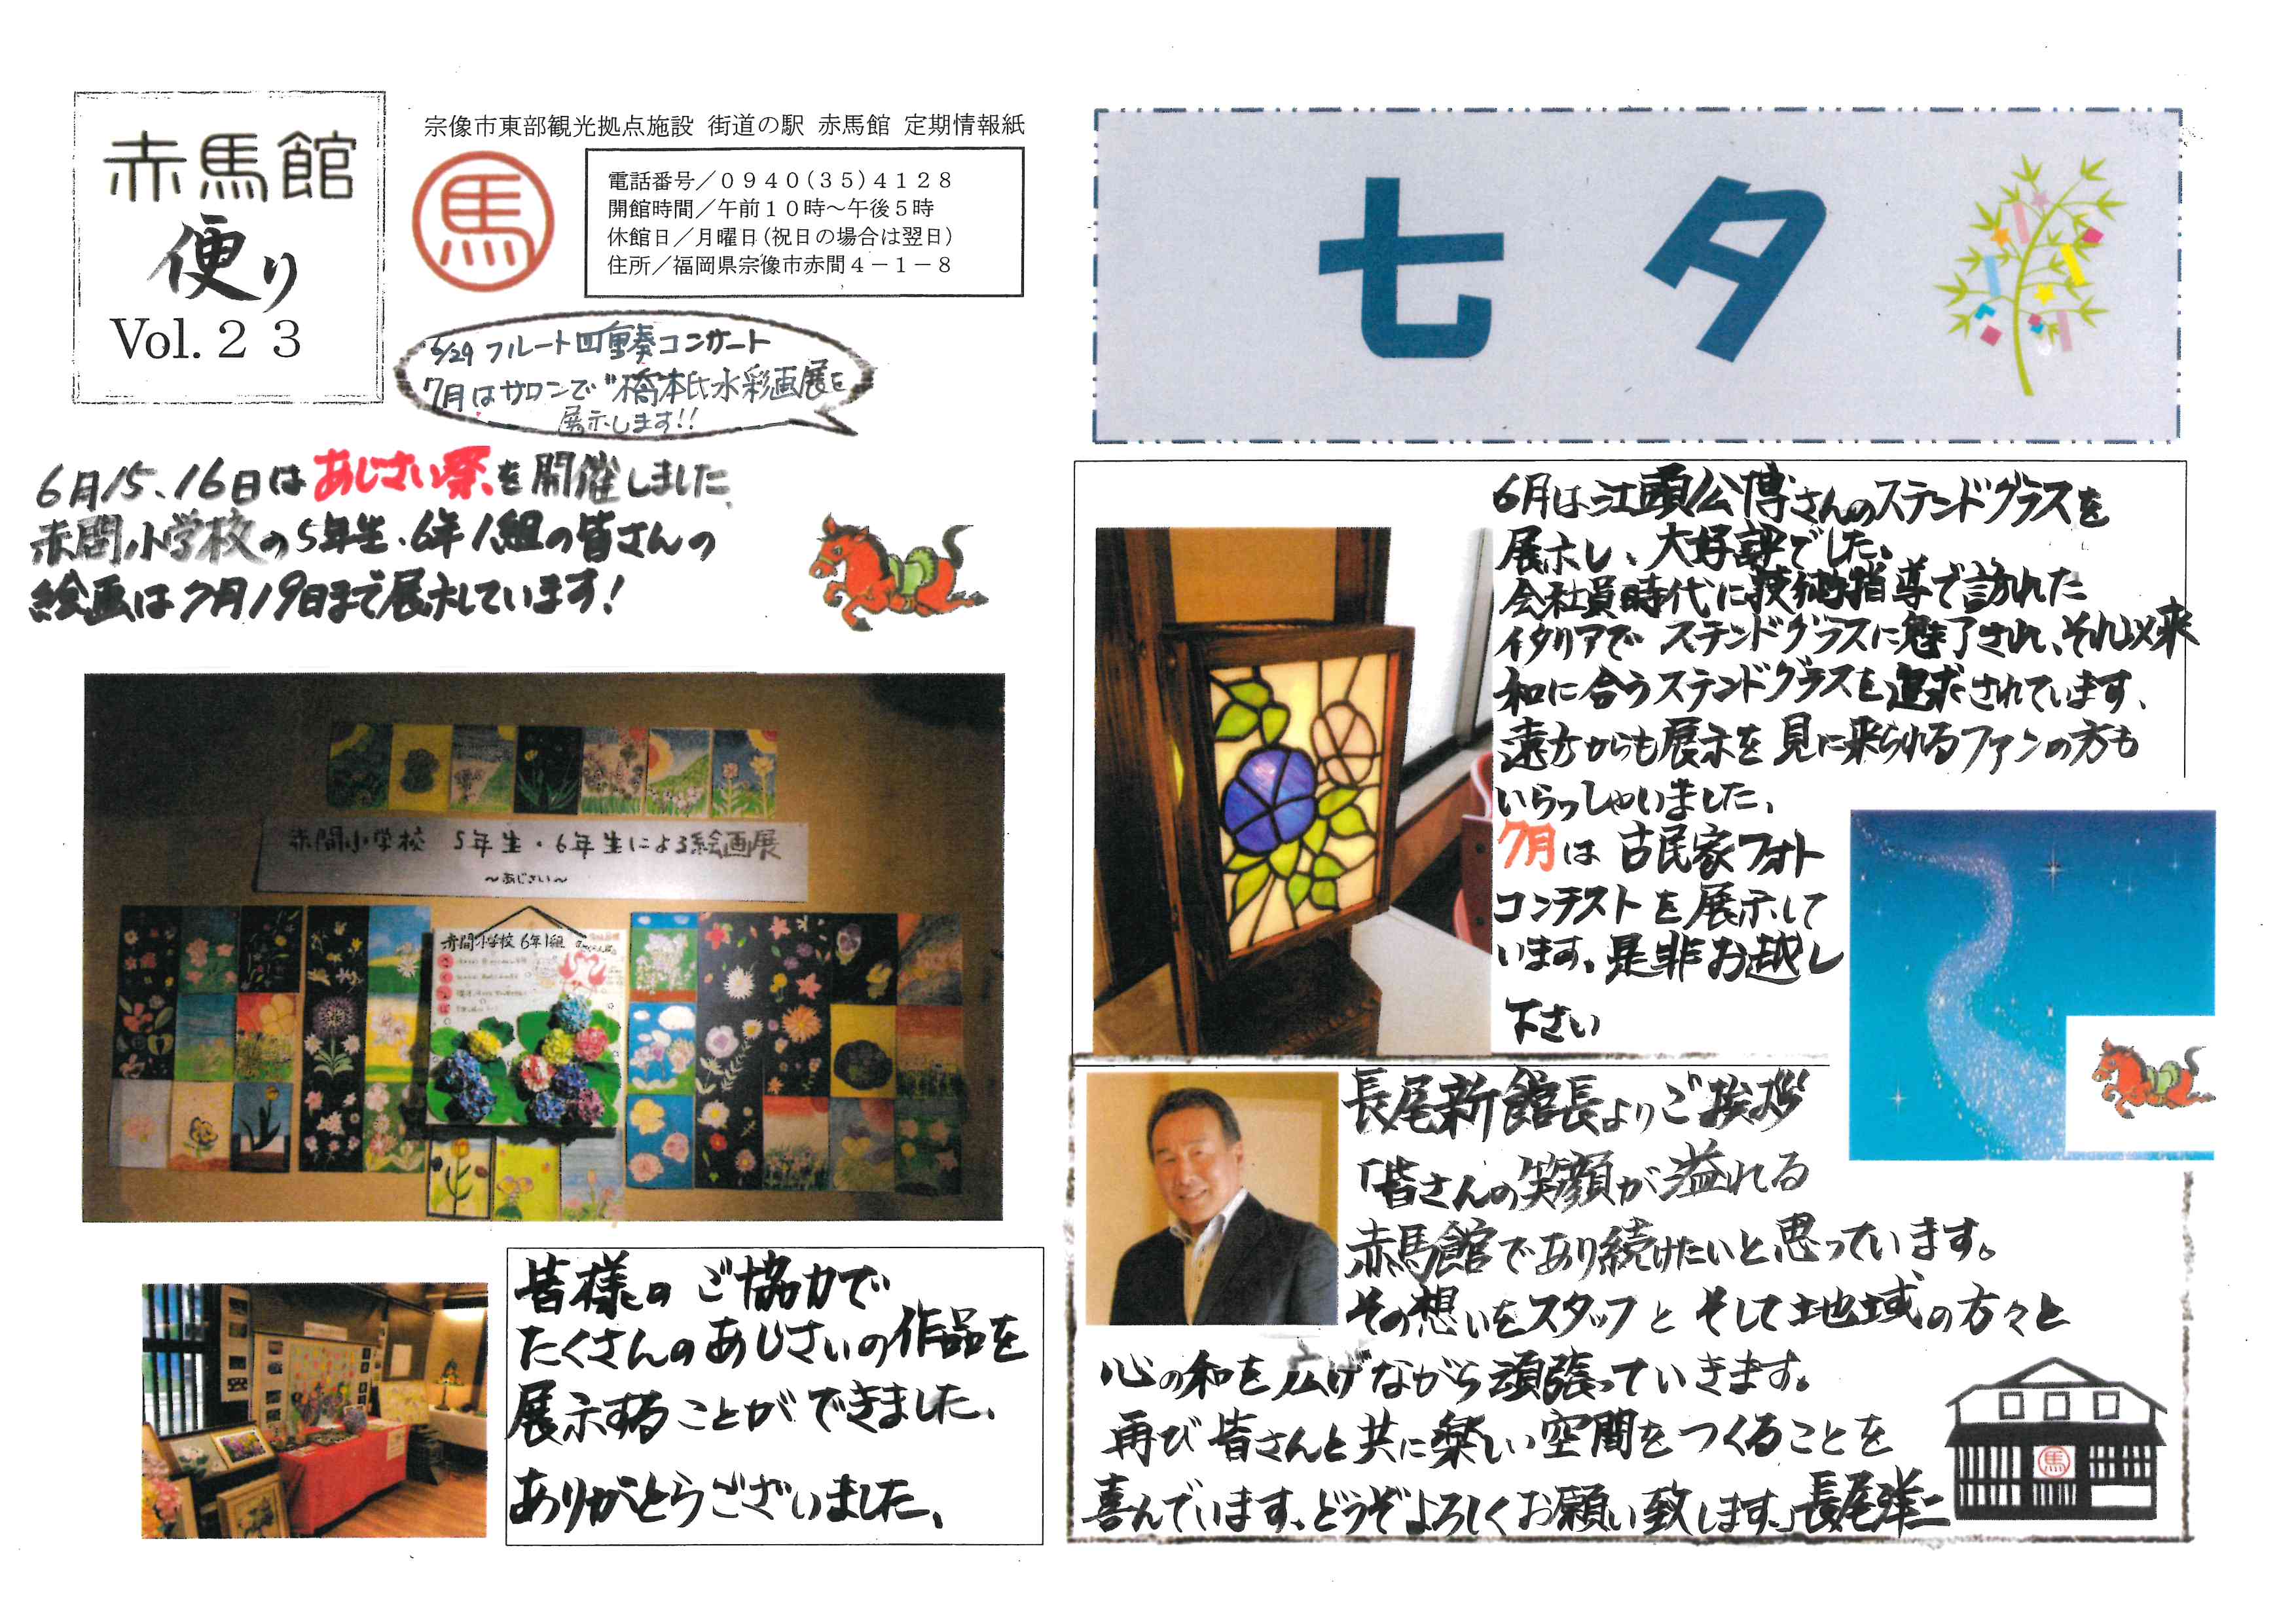 赤馬館
便り
Vol.２３
宗像市東部観光拠点施設 街道の駅 赤馬館 定期情報紙
馬
電話番号／０９４０(３５)４１２８
開館時間／午前１０時～午後５時
休館日／月曜日(祝日の場合は翌日)
住所／福岡県宗像市赤間４－１－８
6/29 フルート四重奏コンサート
7月はサロンで"橋本氏水彩画展を
展示します!!
6月15、16日はあじさい祭を開催しました、
赤間小学校の5年生、6年1組の皆さんの
絵画は7月19日まで展示しています!
赤間小学校 5年生・6年生による絵画展
～あじさい～
赤間小学校 6年1組
皆様のご協力で
たくさんのあじさいの作品を
展示することができました、
ありがとうございました、
七夕
6月は江頭公博さんのステンドグラスを
展示し、大好評でした、
会社員時代に技術指導で訪れた
イタリアで ステンドグラスに魅了され、それ以来
和に合うステンドグラスを追求されています、
遠方からも展示を見に来られるファンの方も
いらっしゃいました、
7月は 古民家フォト
コンテストを展示して
います。是非お越し
下さい
長尾新館長よりご挨拶
「皆さんの笑顔が溢れる
赤馬館であり続けたいと思っています。
その想いをスタッフと そして地域の方々と
心の和を広げながら頑張っていきます。
再び皆さんと共に楽しい空間をつくることを
喜んでいます、どうぞよろしくお願い致します、」長尾洋二
馬